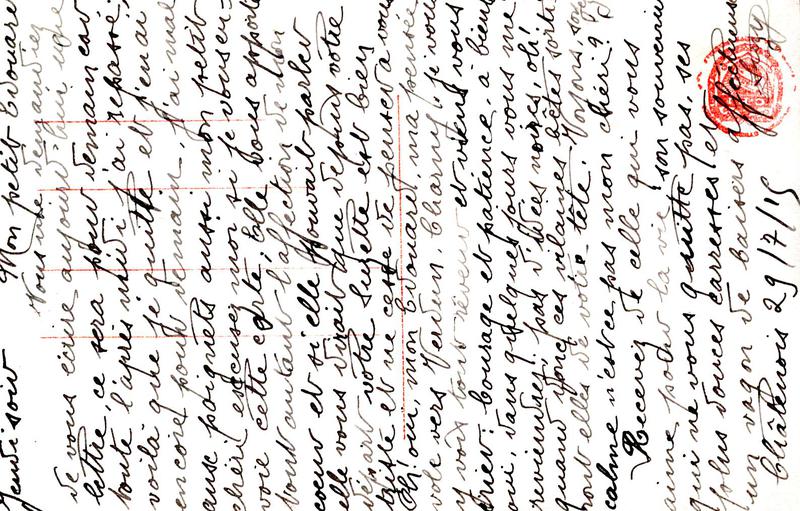 Jeudi soir
Mon petit Edouard
Vous me demandiez
de vous écrire aujourd'hui une
lettre, ce sera pour demain car
toute l'après midi j'ai repassé,
voilà que je quitte et j'en ai
encore pour demain. J'ai mal
aux poignets aussi mon petit
chéri excusez moi si je vous en-
voie cette carte, elle vous apporte
tout autant l'affection de mon
coeur et si elle pouvait parler
elle vous dirait que depuis votre
départ votre Suzette est bien
triste et ne cesse de penser à vous
Oh! oui, mon Edouard, ma pensée
vole vers Verdun, Charny, je vous
y vois tout rêveur et vous vous
ennuyer
oui, dans quelques jours vous me
reviendrez; pas d'idées noires, oh!
quand donc ces vilaines bêtes sorti-
ront elles de votre tête. Voyons, soyez
calme n'est ce pas mon chéri?
Recevez de celle qui vous
aime pour la vie son souvenir
qui ne vous quitte pas, ses
plus douces carresses et
un wagon de baisers affectueux
Suzy
Châtenois 29/7/15